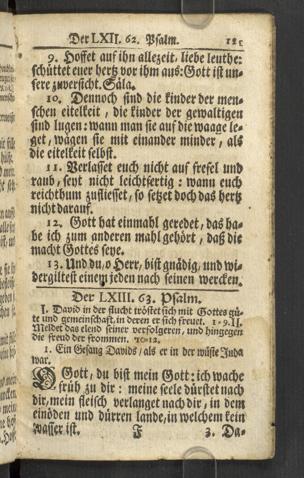 Der LXII. 62. Psalm. 125
9. Hoffet auf ihn allezeit, liebe leuthe:
schüttet euer hertz vor ihm aus: Gott ist un-
sere zuversicht. Säla.
10. Dennoch sind die kinder der men-
schen eitelkeit, die kinder der gewaltigen
sind lugen: wann man sie auf die waage le-
get, wägen sie mit einander minder, als
die eitelkeit selbst.
11. Verlasset euch nicht auf frefel und
raub, seyt nicht leichtfertig: wann euch
reichthum zufliesset, so setzet doch das hertz
nicht darauf.
12. Gott hat einmahl geredet, das ha-
be ich zum anderen mahl gehört, daß die
macht Gottes seye.
13. Und du, o Herr, bist gnädig, und wi-
dergiltest einem jeden nach seinen wercken.
Der LXIII. 63. Psalm.
I. David in der flucht tröstet sich mit Gottes gü-
te und gemeinschaft, in deren er sich freuet. 1-9. II.
Meldet das elend seiner verfolgeren, und hingegen
die freud der frommen. 10-12.
1. Ein Gesang Davids, als er in der wüste Juda
war.
O Gott, du bist mein Gott: ich wache
früh zu dir: meine seele dürstet nach
dir, mein fleisch verlanget nach dir, in dem
einöden und dürren lande, in welchem kein
wasser ist. F 3. Da-